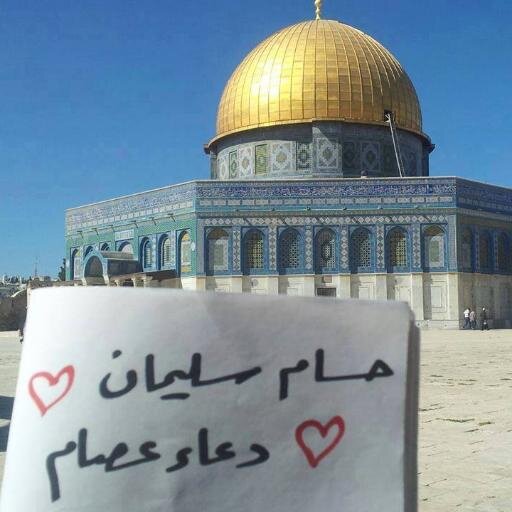 حسام سليمان
دعاء عصام